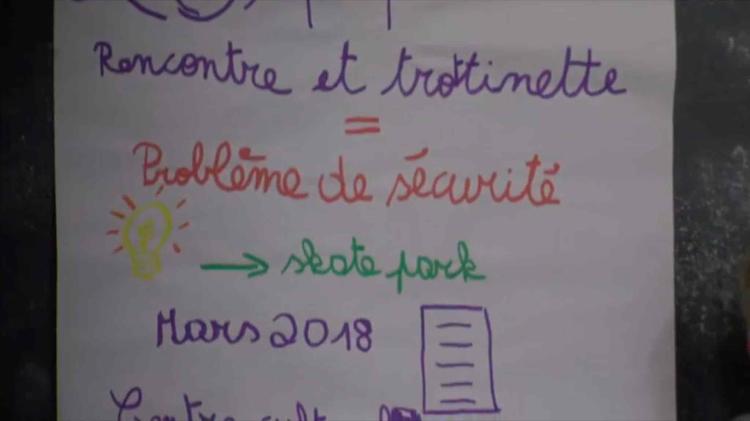 Rencontre et trottinette
=
Problème de sécurité
→ skate park
Mars 2018